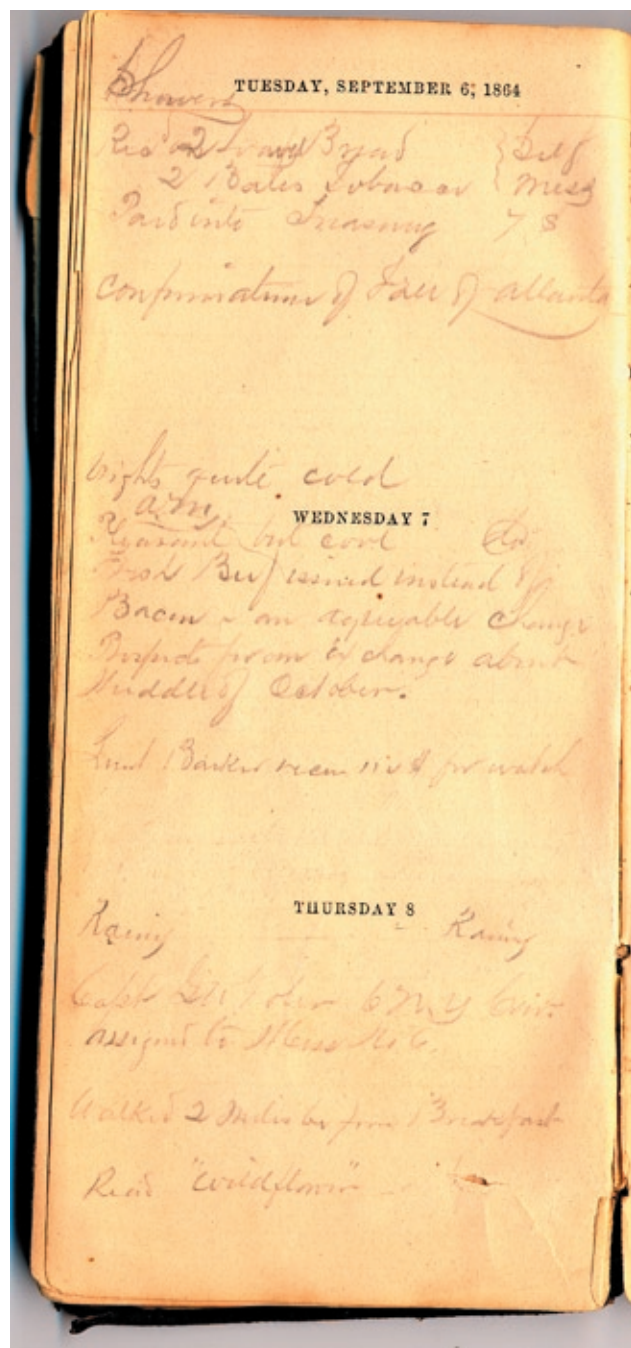 Showers
TUESDAY, SEPTEMBER 6, 1864
Rec'd 2 Bread { Self
2 Bales Tobacco { Mess
Paid into Treasury 78
Confirmation of Fall of Atlanta
Nights quite cold
a.m.
WEDNESDAY 7
Pleasant but cool
Fresh Beef issued instead of
Bacon - an agreeable change
from Exchange about
Middle of October.
Lieut Barker for watch
THURSDAY 8
Rainy Rainy
Capt 6 N.Y. Cav.
assigned to Mess No 6.
Walked 2 Miles before Breakfast
Read "Wildflower"